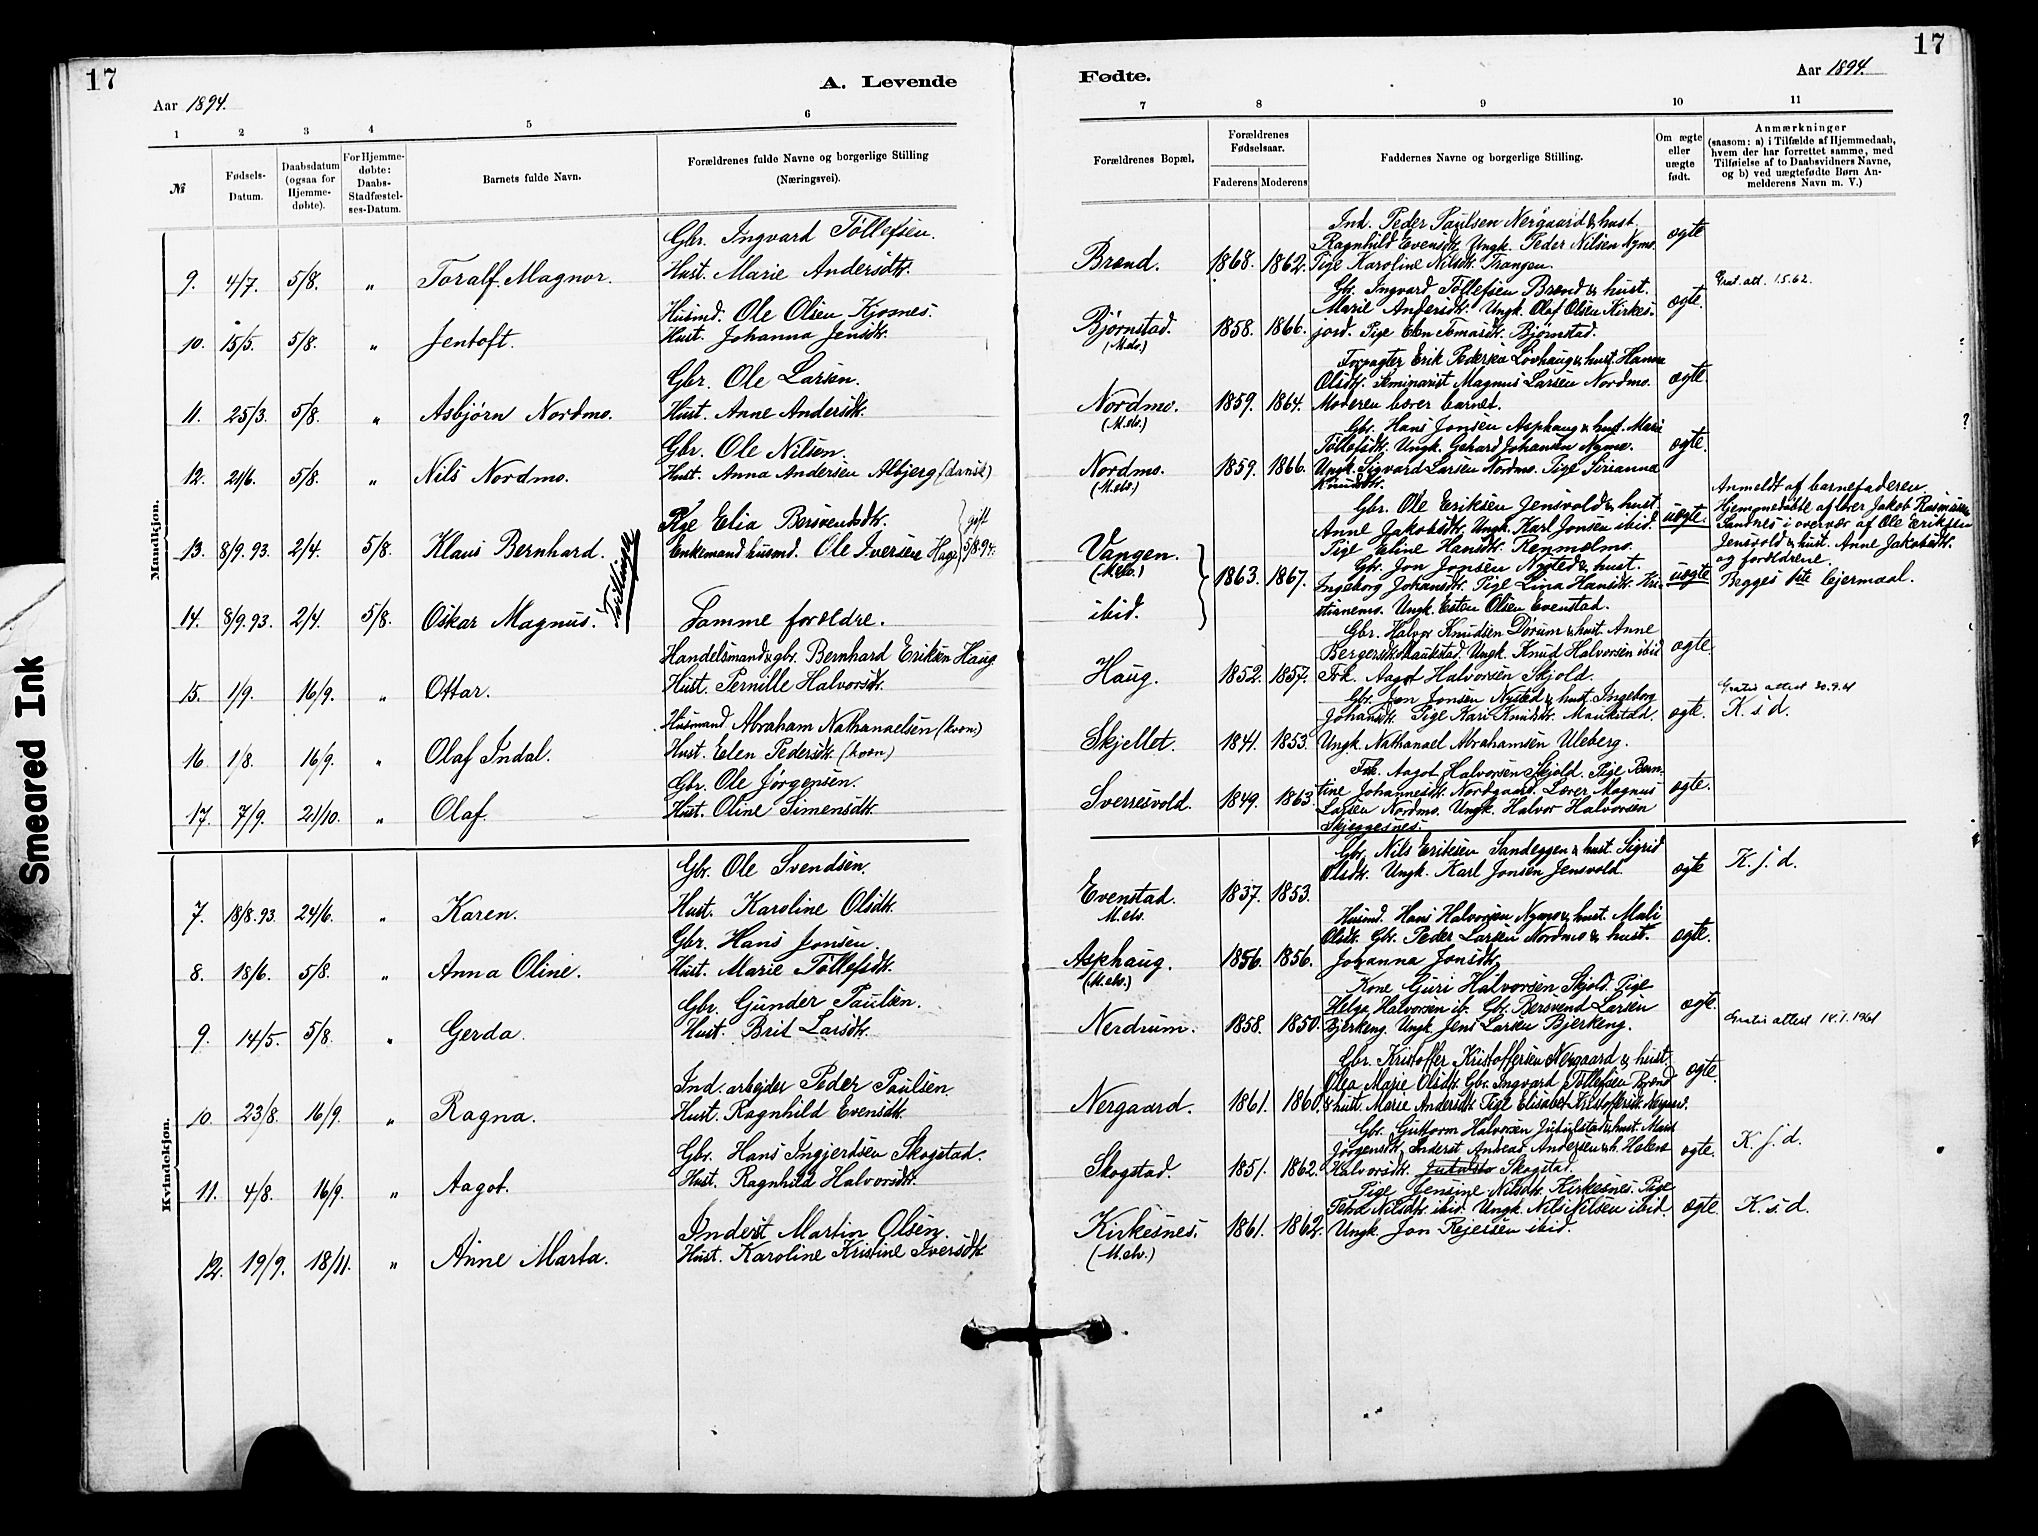 17
A. Levende
Aar 1894.
Fødte.
Aar 1894.
17
1 2 3 4 5 6
7 8 9 10 11
№
Fødsels-
Datum.
Daabsdatum
(ogsaa for
Hjemme-
døbte).
For Hjemme-
døbte:
Daabs-
Stadfæstel-
ses-Datum.
Barnets fulde Navn.
Forældrenes fulde Navne og borgerlige Stilling
(Næringsvei).
Forældrenes Bopæl.
Forældrenes
Fødselsaar.
Faderens Moderens
Faddernes Navne og borgerlige Stilling.
Om ægte
eller
uægte
født.
Anmærkninger
(saasom: a) i Tilfælde af Hjemmedaab,
hvem der har forrettet samme, med
Tilføielse af to Daabsvidners Navne,
og b) ved uægtefødte Børn An-
melderens Navn m. V.)
Mandkjøn.
9. 4/7. 5/8. " Toralf Magnor.
Gbr. Ingvard Tøllefsen.
Hust. Marie Andersdtr.
Brænd. 1868. 1862.
Ind. Peder Paulsen Nergaard & hust.
Ragnhild Evensdtr. Ungk. Peder Nilsen Nymo.
Pige Karoline Nilsdtr. Trangen.
ægte
10. 15/5. 5/8. " Jentoft.
Husmd. Ole Olsen Kjosnes.
Hust. Johanna Jensdtr.
Bjørnstad.
(M.elv.)
1858. 1866.
Gbr. Ingvard Tøllefsen Brænd & hust.
Marie Andersdtr. Ungk. Olaf Olsen Kirkes-
jord. Pige Elen Tomasdtr. Bjørnstad.
ægte.
Grat. att. 1.5.62.
11. 25/3. 5/8. " Asbjørn Nordmo.
Gbr. Ole Larsen.
Hust. Anne Andersdtr.
Nordmo.
(M.elv.)
1859. 1864.
Forpagter Erik Pedersen Løvhaug & hust. Hanna
Olsdtr. Seminarist Magnus Larsen Nordmo.
Moderen bærer barnet.
ægte.
12. 21/6. 5/8. " Nils Nordmo.
Gbr. Ole Nilsen.
Hust. Anna Andersen Albjerg (dansk)
Nordmo.
(M.elv.)
1859. 1866.
Gbr. Hans Jonsen Asphaug & hust. Mari
Tøllefsdtr. Ungk. Gerhard Johansen Nymo.
Ungk. Sigvard Larsen Nordmo. Pige Sirianna
Knudsdtr.
ægte.
13. 8/9.93. 2/4. 5/8. Klaus Bernhard.
Tvillinger
Pige Elia Bersvendsdtr.
Enkemand husmd. Ole Iversen Hage
gift
5/8.94.
Vangen.
(M.elv.)
1863. 1867.
Gbr. Ole Eriksen Jensvold & hust.
Anne Jakobsdtr. Ungk. Karl Jonsen ibid.
Pige Eline Hansdtr. Renmælmo.
uægte.
Anmeldt af barnefaderen.
Hjemmedøbte af lærer Jakob Rasmussen
Sandnes i overvær af Ole Eriksen
Jensvold & hust. Anne Jakobsdtr.
og forældrene.
Begges 1ste leiermaal.
14. 8/9.93. 2/4. 5/8. Oskar Magnus.
Samme forældre.
ibid.
Gbr. Jon Jonsen Nysted & hust.
Ingeborg Johansdtr. Pige Lina Hansdtr. Kri-
stianemo. Ungk. Esten Olsen Evenstad.
uægte
15. 1/9. 16/9. " Ottar.
Handelsmand & gbr. Bernhard Eriksen Haug
Hust. Pernille Halvorsdtr.
Haug. 1852. 1857.
Gbr. Halvor Knudsen Dørum & hust. Anne
Bergersdtr. Maukstad. Ungk. Knud Halvorsen ibid
Frk. Aagot Halvorsen Skjold.
ægte.
Gratis attest 20.9.61
16. 1/8. 16/9. " Olaf Indal.
Husmand Abraham Nathanaelsen (kvæn.)
Hust. Elen Pedersdtr. (kvæn)
Skjellet. 1841. 1853.
Gbr. Jon Jonsen Nysted & hust. Ingeborg
Johansdtr. Pige Kari Knudsdtr. Maukstad.
Ungk. Nathanael Abrahamsen Uleberg.
ægte.
K. s. d.
17. 7/9. 21/10. " Olaf.
Gbr. Ole Jørgensen.
Hust. Oline Simensdtr.
Sverresvold. 1849. 1863.
Frk. Aagot Halvorsen Skjold. Pige Bern-
tine Johannesdtr. Nordgaard. Lærer Magnus
Larsen Nordmo. Ungk. Halvor Halvorsen
Skjeggesnes.
ægte.
Kvindekjøn.
7. 18/8.93. 24/6. " Karen.
Gbr. Ole Svendsen.
Hust. Karoline Olsdtr.
Evenstad.
M.elv.
1837. 1853.
Gbr. Nils Eriksen Sandeggen & hust. Sigrid
Olsdtr. Ungk. Karl Jonsen Jensvold.
ægte
K. s. d.
8. 18/6. 5/8. " Anna Oline.
Gbr. Hans Jonsen.
Hust. Marie Tøllefsdtr.
Asphaug.
(M.elv.)
1856. 1856.
Husmd. Hans Halvorsen Nymo & hust. Mali
Olsdtr. Gbr. Peder Larsen Nordmo & hust.
Johanna Jonsdtr.
ægte.
9. 14/5. 5/8. " Gerda.
Gbr. Gunder Paulsen.
Hust. Brit Larsdtr.
Nerdrum. 1858. 1850.
Kone Guri Halvorsen Skjold. Pige
Helga Halvorsen ib. Gbr. Bersvend Larsen
Bjerkeng. Ungk. Jens Larsen Bjerkeng.
ægte.
Gratis attest 14.1.1961
10. 23/8. 16/9. " Ragna.
Ind. arbejder Peder Paulsen.
Hust. Ragnhild Evensdtr.
Nergaard. 1861. 1860.
Gbr. Kristoffer Kristoffersen Nergaard & hust.
Olea Marie Olsdtr. Gbr. Ingvard Tøllefsen Brænd
& hust. Marie Andersdtr. Pige Elisabet Kristoffersdtr. Nergaard.
ægte.
11. 4/8. 16/9. " Aagot.
Gbr. Hans Ingjerdsen Skogstad.
Hust. Ragnhild Halvorsdtr.
Skogstad. 1851. 1862.
Gbr. Guttorm Halvorsen & hust. Marit
Jørgensdtr. Inderst Andreas Andersen & h. Helena
Halvorsdtr. Skogstad.
ægte.
K. s. d.
12. 19/9. 18/11. " Anne Marta.
Inderst Martin Olsen.
Hust. Karoline Kristine Iversdtr.
Kirkesnes.
(M.elv.)
1861. 1862.
Pige Jensine Nilsdtr. Kirkesnes. Pige
Petra Nilsdtr. ibid. Ungk. Nils Nilsen ibid.
Ungk. Jon Rejersen ibid.
ægte.
K. s. d.
Smeared Ink